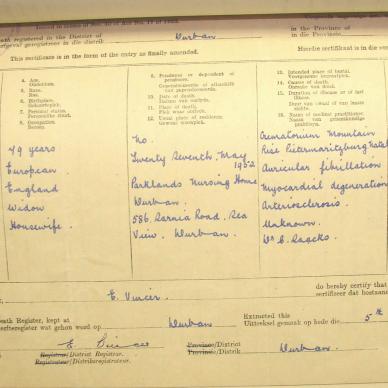 Death registered in the District of
Durban
in the Province of
in die Provinsie
This certificate is in the form of the entry as finally amended.
Hierdie sertifikaat is in die
4. Age.
Ouderdom.
5. Race.
Ras.
6. Birthplace.
Geboorteplek.
7. Personal status.
Persoonlike staat.
8. Occupation.
Beroep.
9. Pensioner or dependent of pensioner.
10. Date of death.
Datum van oorlyde.
11. Place of death.
Plek waar oorlede.
12. Usual place of residence.
Gewone woonplek.
13. Intended place of burial.
14. Causes of death.
Oorsake van dood.
15. Duration of disease or of last illness.
Duur van siekte of van laaste siekte.
16. Name of medical practitioner.
Naam van geneeskundige praktisyn.
79 years
European
England
Widow
Housewife.
No.
Twenty Seventh, May
1952
Parklands Nursing Home
Durban.
586, Sarnia Road, Sea
View. Durban.
Crematorium Mountain
Rise Pietermaritzburg Natal
Auricular fibrillation
Myocardial degeneration
Arteriosclerosis.
Unknown.
do hereby certify that
sertifiseer dat
Death Register, kept at
Durban
Extracted this
Uittreksel gemaak op hede die
5th
Registrar/District Registrar.
Registrateur/Distriksregistrateur.
Province/District
Provinsie/Distrik
Durban.